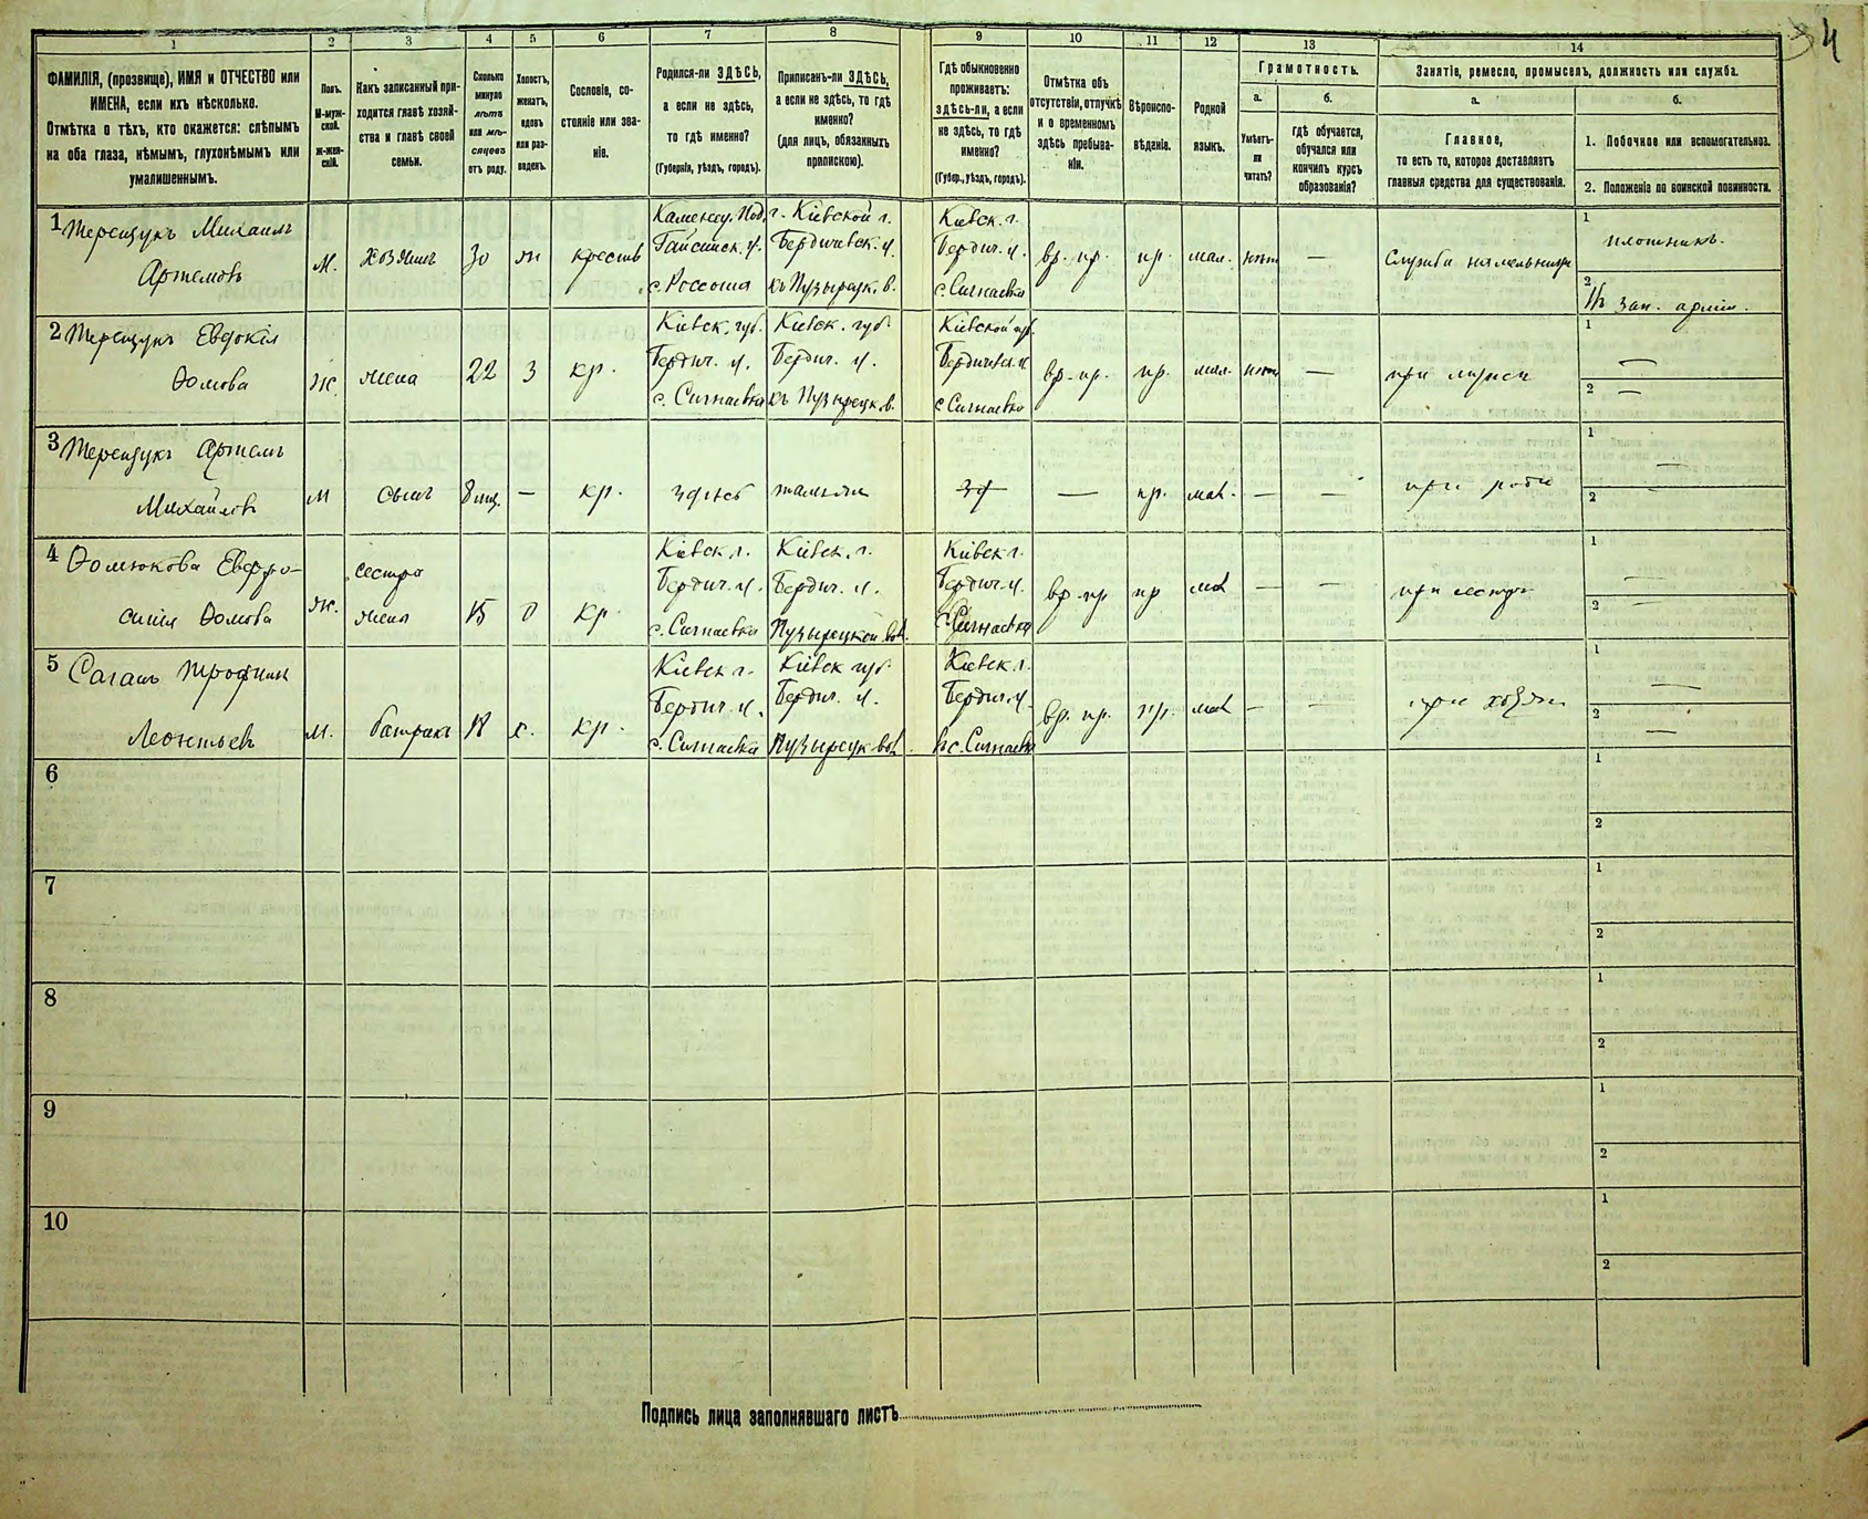 34
1 2 3 4 5 6 7 8 9 10 11 12 13 14
ФАМИЛІЯ, (прозвище), ИМЯ и ОТЧЕСТВО или
ИМЕНА, если ихъ нѣсколько.
Отмѣтка о тѣхъ, кто окажется: слѣпымъ
на оба глаза, нѣмымъ, глухонѣмымъ или
умалишеннымъ.
Полъ.
М-муж-
ской.
Ж-жен-
скій.
Какъ записанный при-
ходится главѣ хозяй-
ства и главѣ своей
семьи.
Сколько
минуло
лѣтъ
или мѣ-
сяцевъ
отъ роду.
Холостъ,
женатъ,
вдовъ
или раз-
веденъ.
Сословіе, со-
стояніе или зва-
ніе.
Родился-ли ЗДѢСЬ,
а если не здѣсь,
то гдѣ именно?
(Губернія, уѣздъ, городъ).
Приписанъ-ли ЗДѢСЬ,
а если не здѣсь, то гдѣ
именно?
(для лицъ, обязанныхъ
припискою).
Гдѣ обыкновенно
проживаетъ:
здѣсь-ли, а если
не здѣсь, то гдѣ
именно?
(Губер., уѣздъ, городъ).
Отмѣтка объ
отсутствіи, отлучкѣ
и о временномъ
здѣсь пребыва-
ніи.
Вѣроиспо-
вѣданіе.
Родной
языкъ.
Грамотность.
а.
Умѣетъ-
ли
читать?
б.
гдѣ обучается,
обучался или
кончилъ курсъ
образованія?
Занятіе, ремесло, промыселъ, должность или служба.
а.
Главное,
то есть то, которое доставляетъ
главныя средства для существованія.
б.
1. Побочное или вспомогательное.
2. Положеніе по воинской повинности.
1 Терещукъ Михаилъ
Артемовъ
М.
хозяинъ
30
ж
крестьв
Каменец. Под. г.
Гайсинск. у.
с. Россоша
Кіевской г.
Бердичевск. у.
къ Пузырецк. в.
Кіевск. г.
Бердич. у.
с. Сигнаевка
вр. пр.
пр.
мал.
нѣт
—
Служба
1
плотникъ.
2
зап. арміи.
2 Терещукъ Евдокія
Фомова
Ж.
жена
22
З
кр.
Кіевск. губ.
Бердич. у.
с. Сигнаевка
Кіевск. губ.
Бердич. у.
къ Пузырецк. в.
Кіевской губ.
Бердичевск. у.
с Сигнаевка
вр. пр.
пр.
мал.
нѣт
—
при мужи
1 —
2 —
3 Терещукъ Артемъ
Михайловъ
М
сынъ
8 мц.
—
кр.
здѣсь
—
пр.
мал.
—
—
при
1 —
2
4 Фомюкова Евфро-
синія Фомова
ж.
сестра
жены
15
0
кр
Кіевск г.
Бердич. у.
с. Сигнаевка
Кіевск. г.
Бердич. у.
Пузырецкой вол.
Кіевск г.
Бердич. у.
с. Сигнаевка
вр. пр
пр
мал
—
—
при сестрѣ
1 —
2 —
5 Саганъ Трофимъ
Леонтьевъ
М.
батракъ
18
х.
кр.
Кіевск г.
Бердич. у.
с. Сигнаевка
Кіевск губ.
Бердич. у.
Пузырецк вол.
Кіевск г.
Бердич. у.
с. Сигнаевка
вр. пр.
пр.
мал
—
—
при
1 —
2 —
6
1
2
7
1
2
8
1
2
9
1
2
10
1
2
Подпись лица заполнявшаго листъ